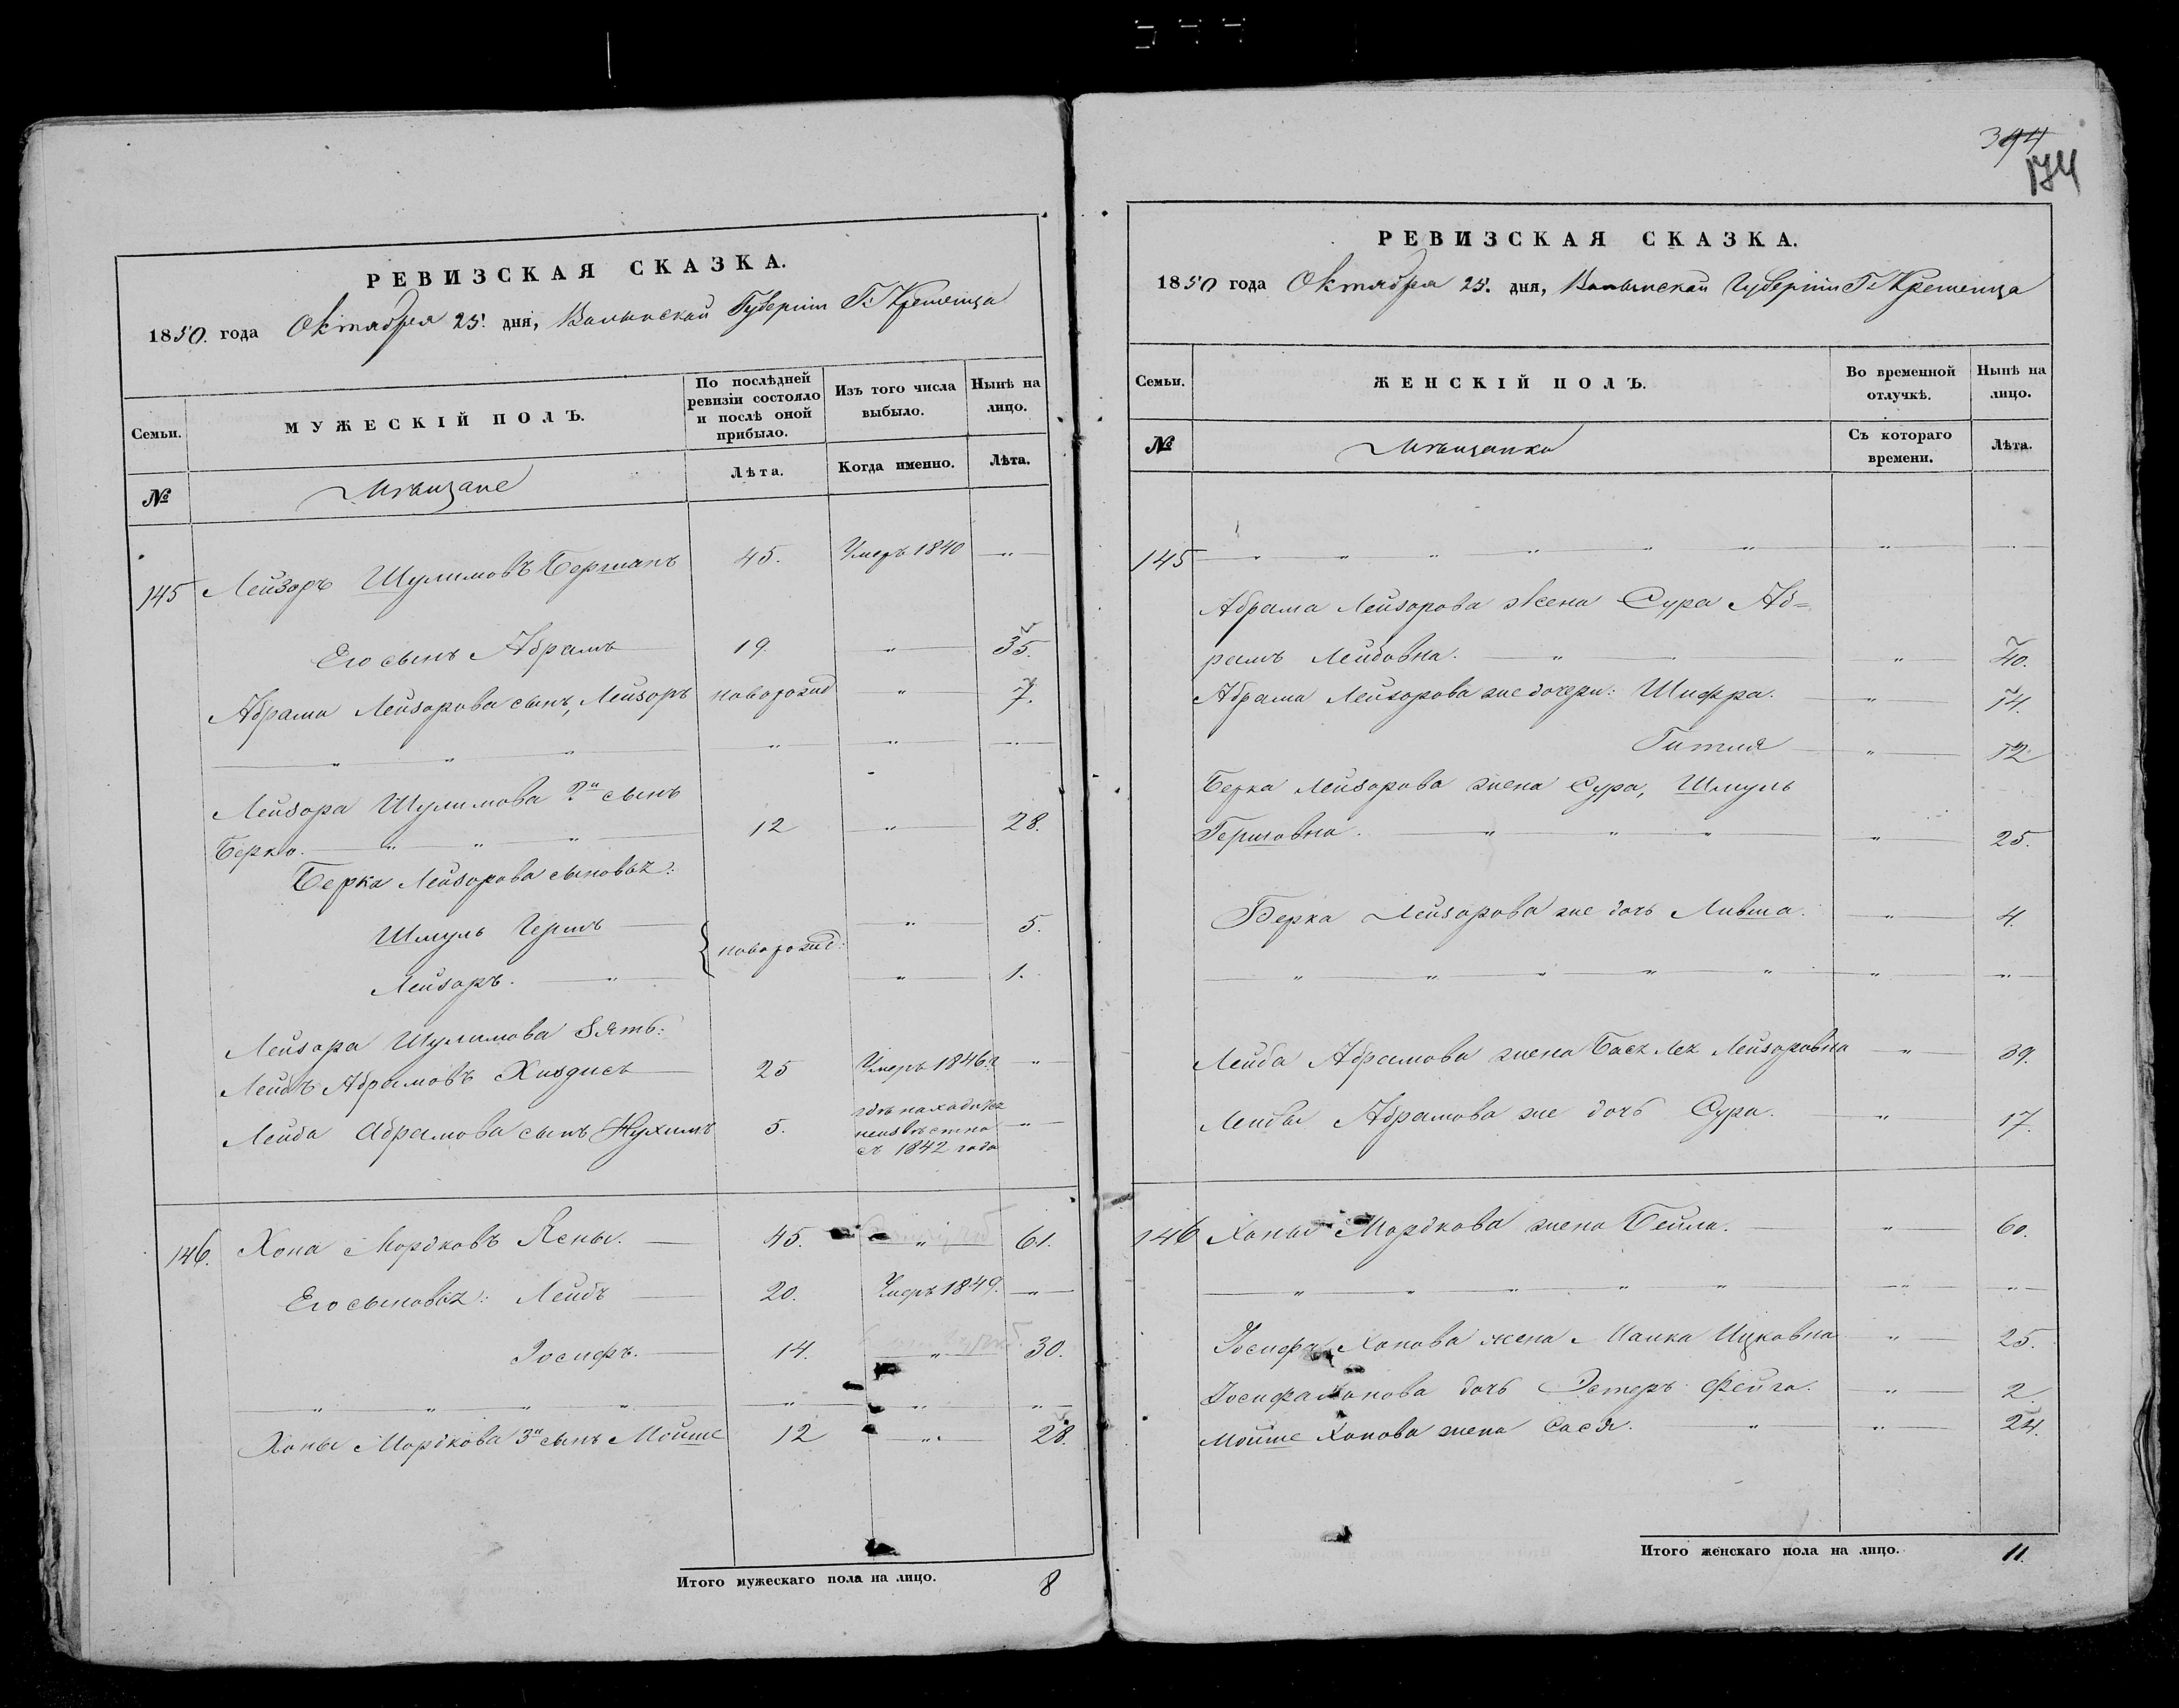 344
174
РЕВИЗСКАЯ СКАЗКА.
1850. года Октября 25. дня, Волынской Губернiи Г: Кременца
Семьи.
МУЖЕСКIЙ ПОЛЪ.
По послѣдней ревизiи состояло и послѣ оной прибыло.
Изъ того числа выбыло.
Нынѣ на лицо.
№
Мѣщане
Лѣта.
Когда именно.
Лѣта.
145 Лейзоръ Шулимовъ Берманъ 45. Умеръ 1840 — " —
Его сынъ Абрамъ — 19. — " — 35.
Абрама Лейзорова сынъ, Лейзоръ новорожд " 7.
Лейзора Шулимова 2й сынъ
Берко. — " " " — 12 — " — 28.
Берка Лейзорова сыновьz:
Шмуль Гершъ — — " — 5.
новорожд:
Лейзоръ. — " — — " — 1.
Лейзора Шулимова Зять:
Лейбъ Абрамовъ Хиздисъ — 25 Умеръ 1846 г — " —
Лейба Абрамова сынъ Нухимъ 5. гдѣ находитсz неизвѣстно съ 1842 года — " —
146. Хона Мордковъ Ясны. — 45. — " — 61.
Его сыновьz: Лейбъ — 20. Умеръ 1849. — " —
Iосифъ. — 14. — " — 30.
Хоны Мордкова 3й сынъ Мойше 12 — " — 28.
Итого мужескаго пола на лицо. 8
РЕВИЗСКАЯ СКАЗКА.
1850 года Октября 25. дня, Волынской Губернiи Г: Кременца
Семьи.
ЖЕНСКIЙ ПОЛЪ.
Во временной отлучкѣ.
Нынѣ на лицо.
№
Мѣщанки
Съ котораго времени.
Лѣта.
145 — " " " " " " — " — " —
Абрама Лейзорова жена Сура Аб=
рамъ Лейбовна. — " — " — 40.
Абрама Лейзорова же дочери: Шифра. — " — 14.
Гитля — " — 12
Берка Лейзорова жена Сура, Шмуль
Гершовна. — " " " — " — 25.
Берка Лейзорова же дочь Лившa. — " — 4.
— " " " " " — " — " —
Лейба Абрамова жена Басz Леz Лейзоровна — " — 39.
Лейбы Абрамова же дочь Сура. — " — 17.
146 Хоны Мордкова жена Бейла. — " — 60.
— " " " " " — " — " —
Iосифа Хонова жена Малка Ицковна " — 25.
Iосифа Хонова дочь Эстеръ Фейга. " — 2
Мойше Хонова жена Сася. " — " — 24.
Итого женскаго пола на лицо. 11